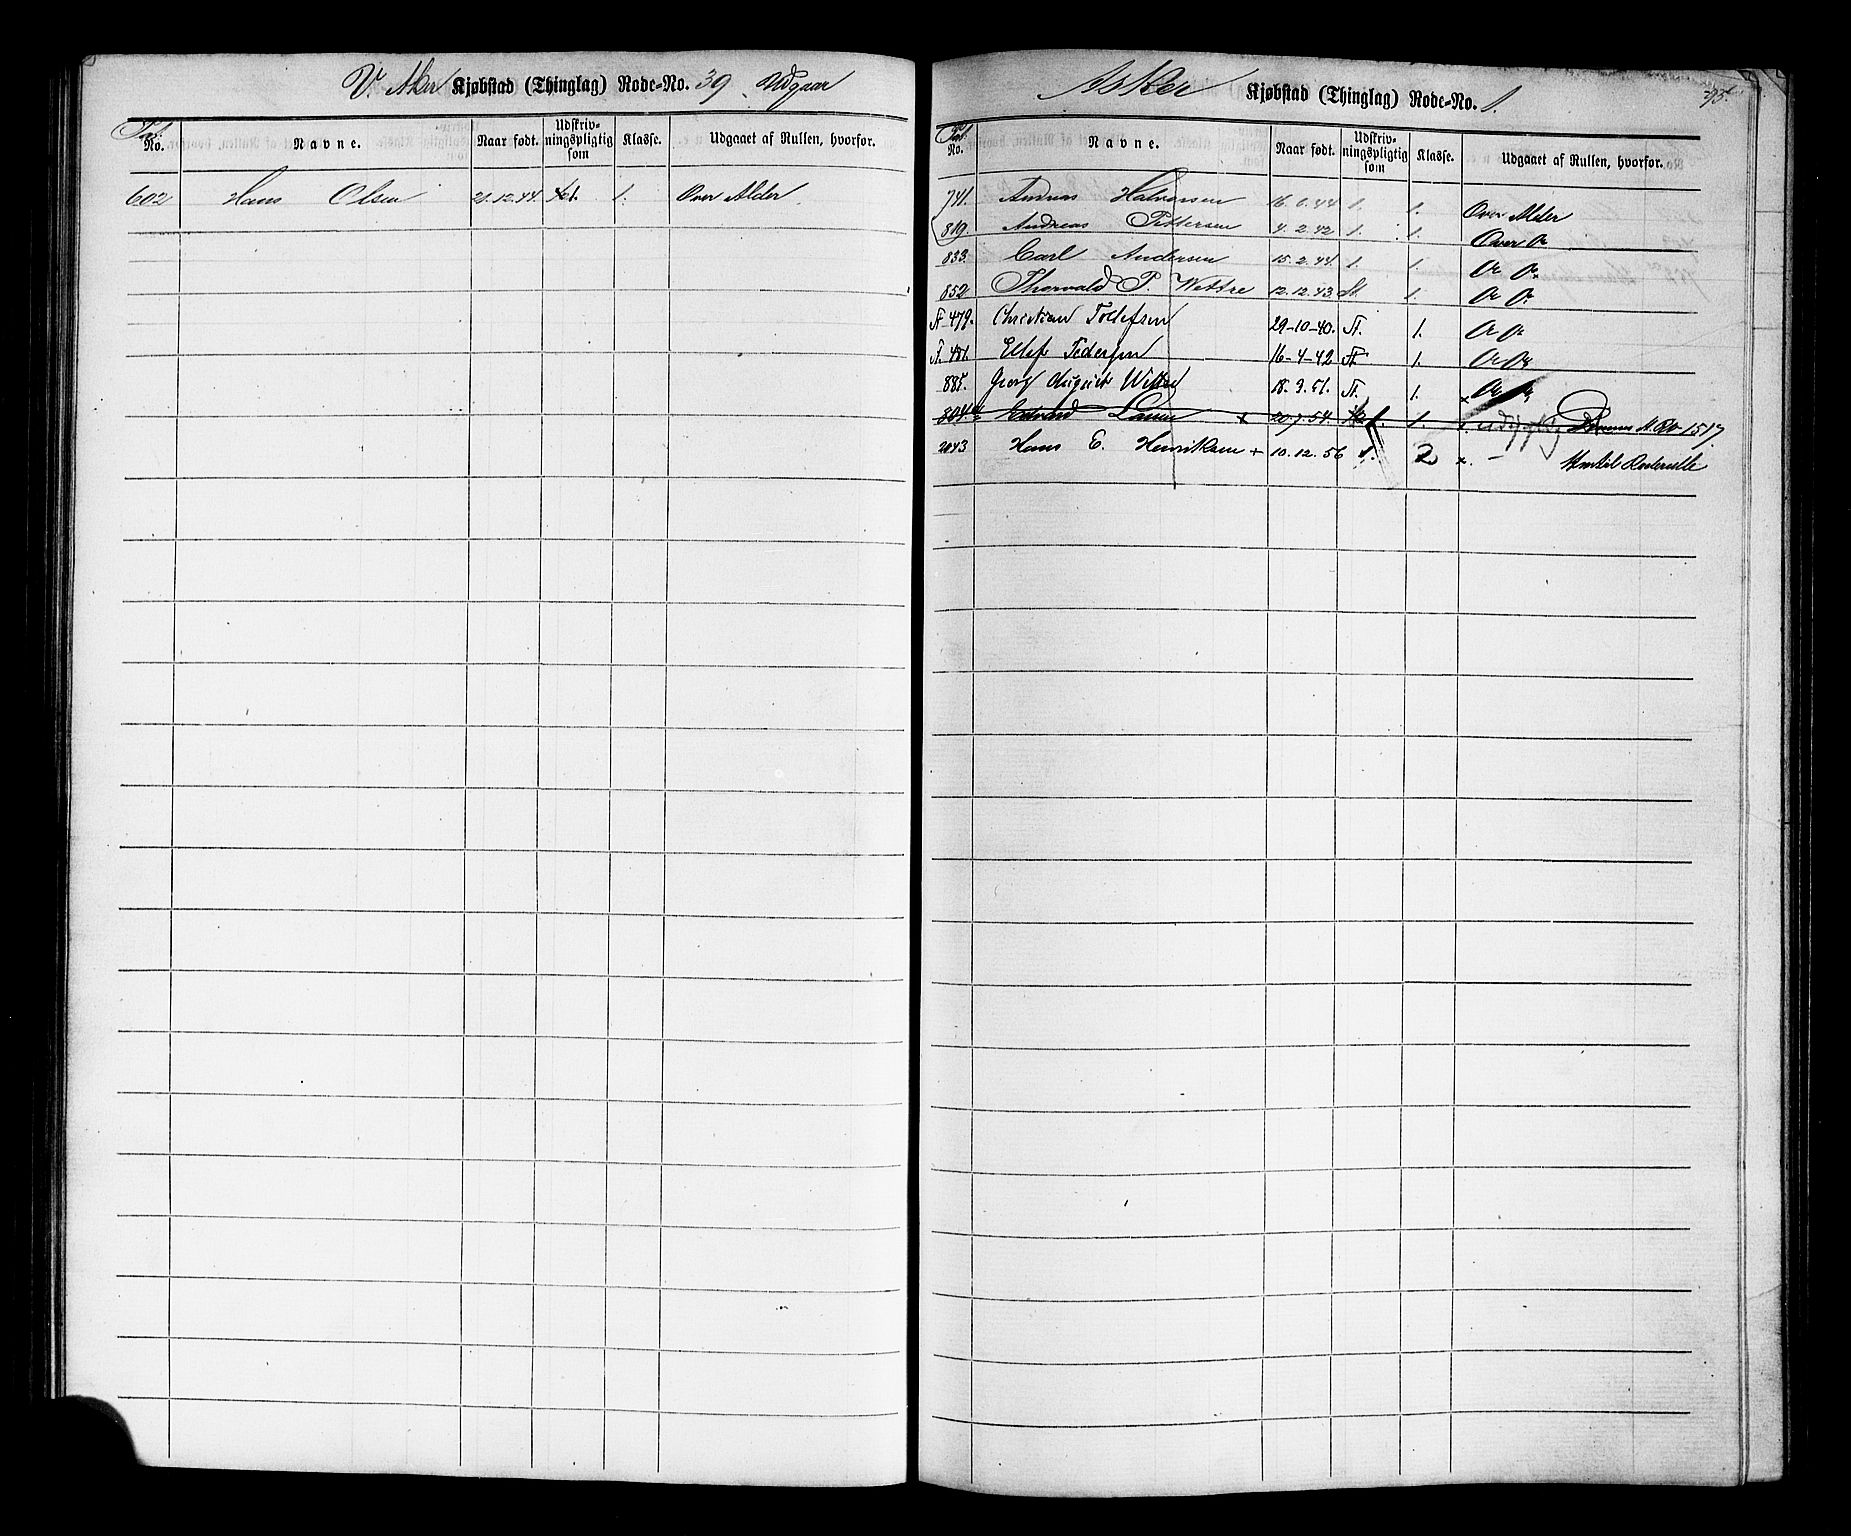 V. Aker Kjøbstad (Thinglag) Rode-No. 39 Udgaar
No. Navne. Naar født. Udskriv-ningspligtig som Klasse. Udgaaet af Rullen, hvorfor.
602 Hans Olsen 21.12.44 1. Over Alder.
Asker Kjøbstad (Thinglag) Rode-No. 1.
No. Navne. Naar født. Udskriv-ningspligtig som Klasse. Udgaaet af Rullen, hvorfor.
741. Halvorsen 16.1.44 1. 1. Over Alder
819. Andreas Pettersen 4.2.42 1. 1. Over Do
833. Carl Andersen 15.2.44. 1. 1. Do Do
852 Thorvald P. Wettre 12.12.43. 1. Do Do
479. Christian Tollefsen 29-10-40. 1. Do Do
481. Ellef Pedersen 16-4-42 1. Do Do
885. Georg August Wettre 18.9.51. 1. Do Do
Edvard 20.7.54. 1. 1517
2043 Hans E. Henriksen + 10.12.56 1. 2 x.